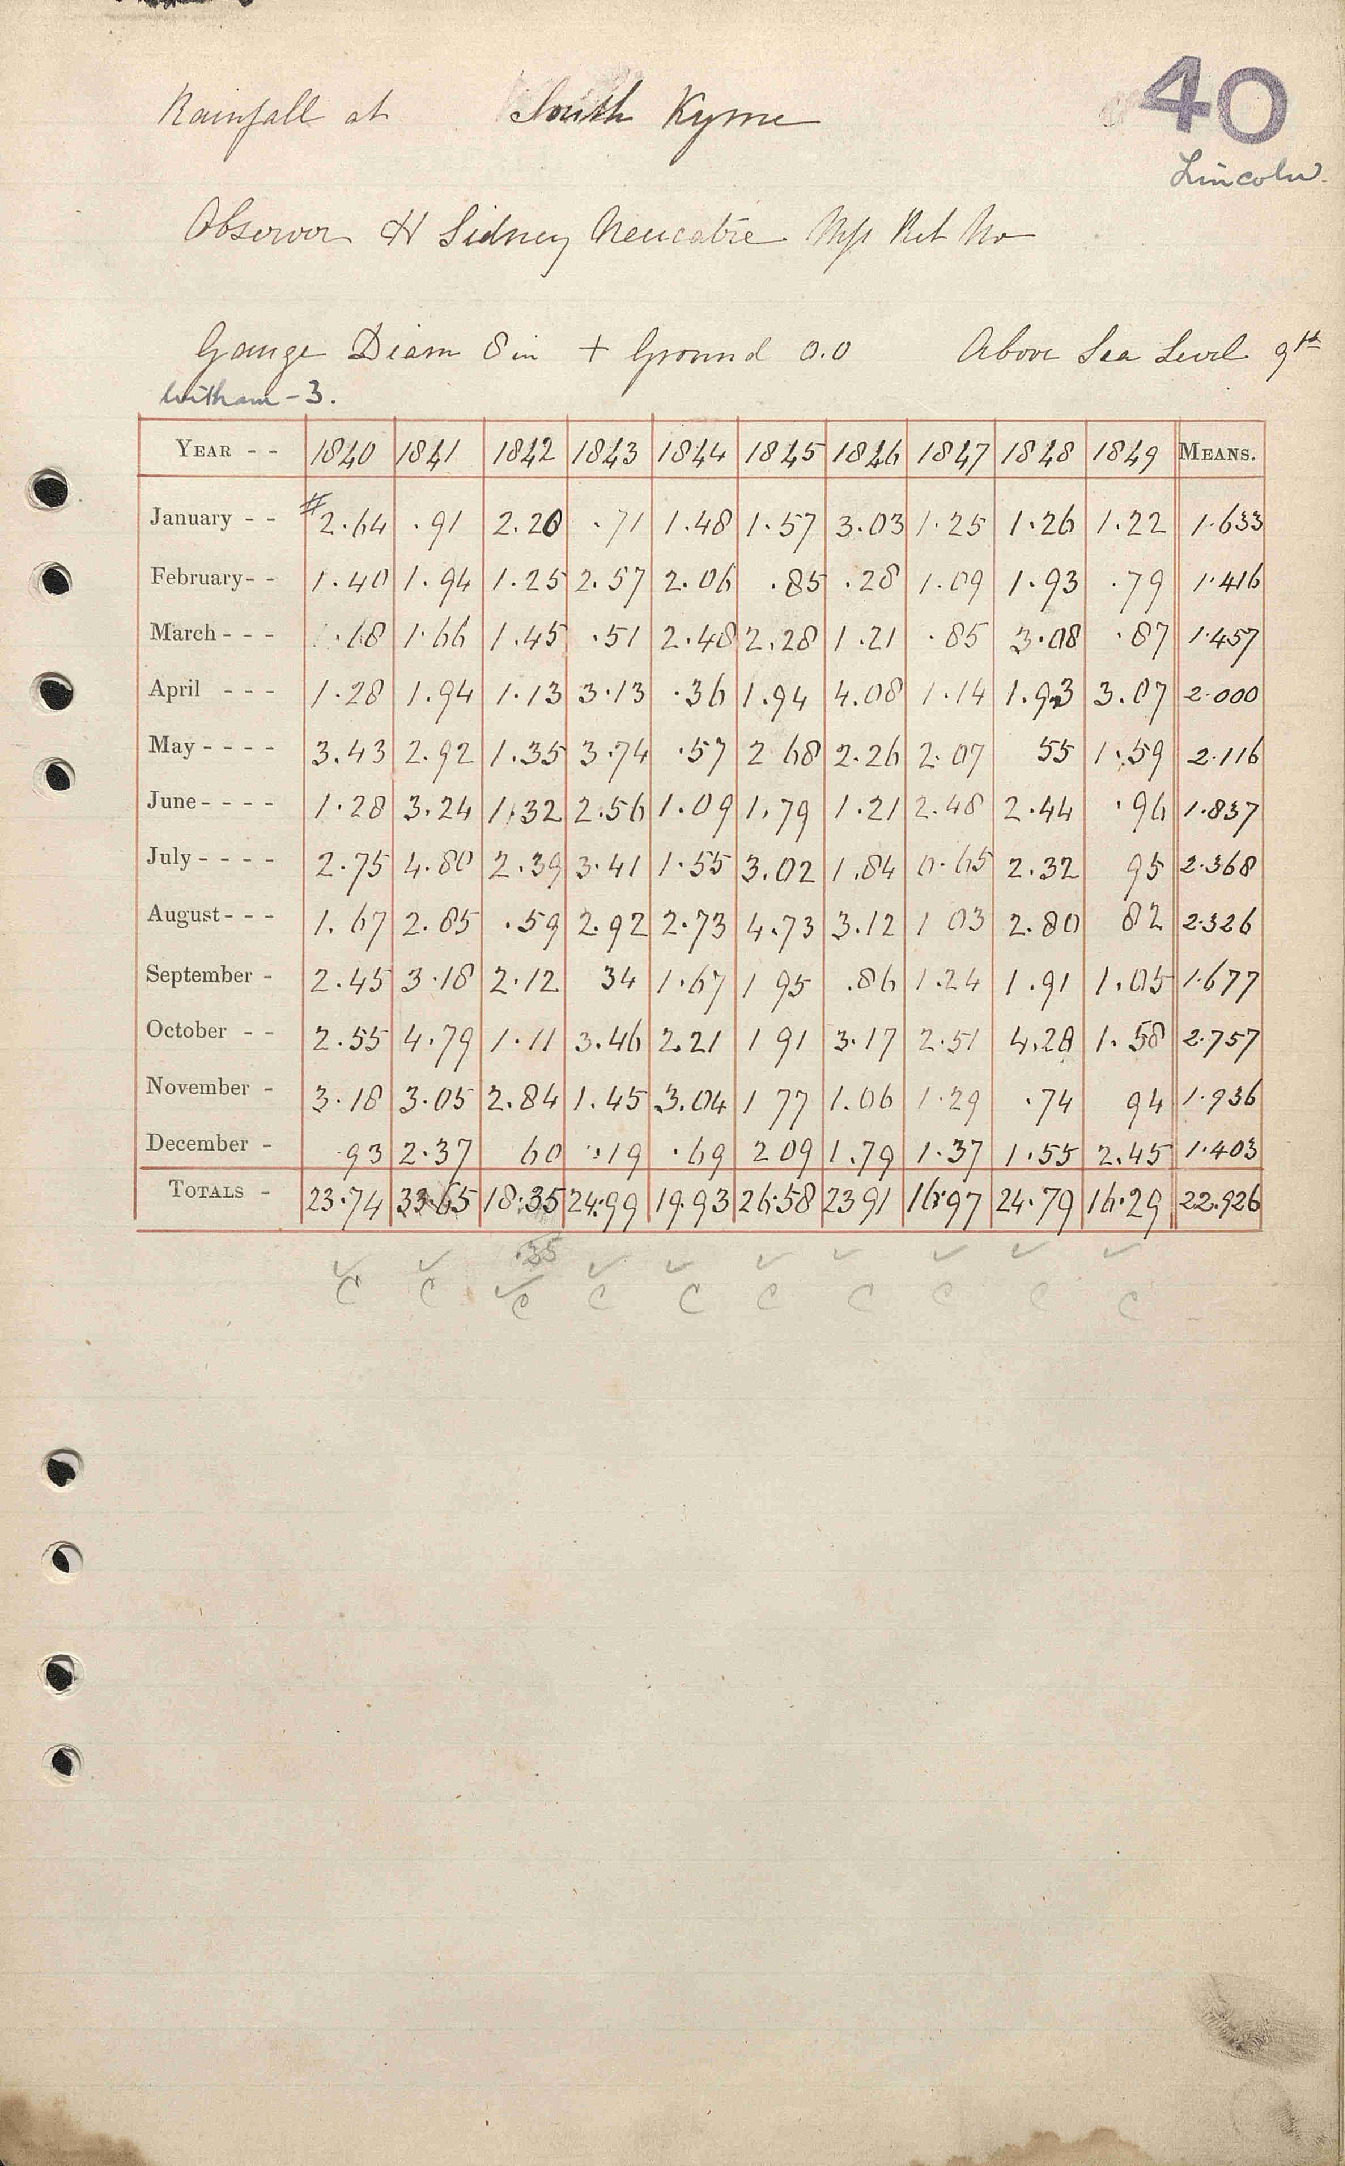 40
Rainfall at South Kyme
Lincoln
Observer H Sidney Mp Ret No
Gauge Diam 8 in + Ground 0.0 Above Sea Level 9ft
Witham - 3.
YEAR - - 1840 1841 1842 1843 1844 1845 1846 1847 1848 1849 MEANS.
January - - #2.64 .91 2.20 .71 1.48 1.57 3.03 1.25 1.26 1.22 1.633
February - - 1.40 1.94 1.25 2.57 2.06 .85 .28 1.09 1.93 .79 1.416
March - - - .18 1.66 1.45 .51 2.48 2.28 1.21 .85 3.08 .87 1.457
April - - - 1.28 1.94 1.13 3.13 .36 1.94 4.08 1.14 1.93 3.07 2.000
May - - - - 3.43 2.92 1.35 3.74 .57 2 68 2.26 2.07 55 1.59 2.116
June - - - - 1.28 3.24 1.32 2.56 1.09 1.79 1.21 2.48 2.44 .96 1.837
July - - - - 2.75 4.80 2.39 3.41 1.55 3.02 1.84 0.65 2.32 95 2.368
August - - - 1.67 2.85 .59 2.92 2.73 4.73 3.12 1 03 2.80 82 2.326
September - 2.45 3.18 2.12 34 1.67 1 95 .86 1.24 1.91 1.05 1.677
October - - 2.55 4.79 1.11 3.46 2.21 1 91 3.17 2.51 4.28 1.58 2.757
November - 3.18 3.05 2.84 1.45 3.04 1 77 1.06 1.29 .74 94 1.936
December - .93 2.37 60 .19 .69 2 09 1.79 1.37 1.55 2.45 1.403
TOTALS - 23.74 33.65 18.35 24.99 19.93 26.58 23 91 16.97 24.79 16.29 22.926
.35
✓ ✓ ✓ ✓ ✓ ✓ ✓ ✓ ✓ ✓
C C C C C C C C C C